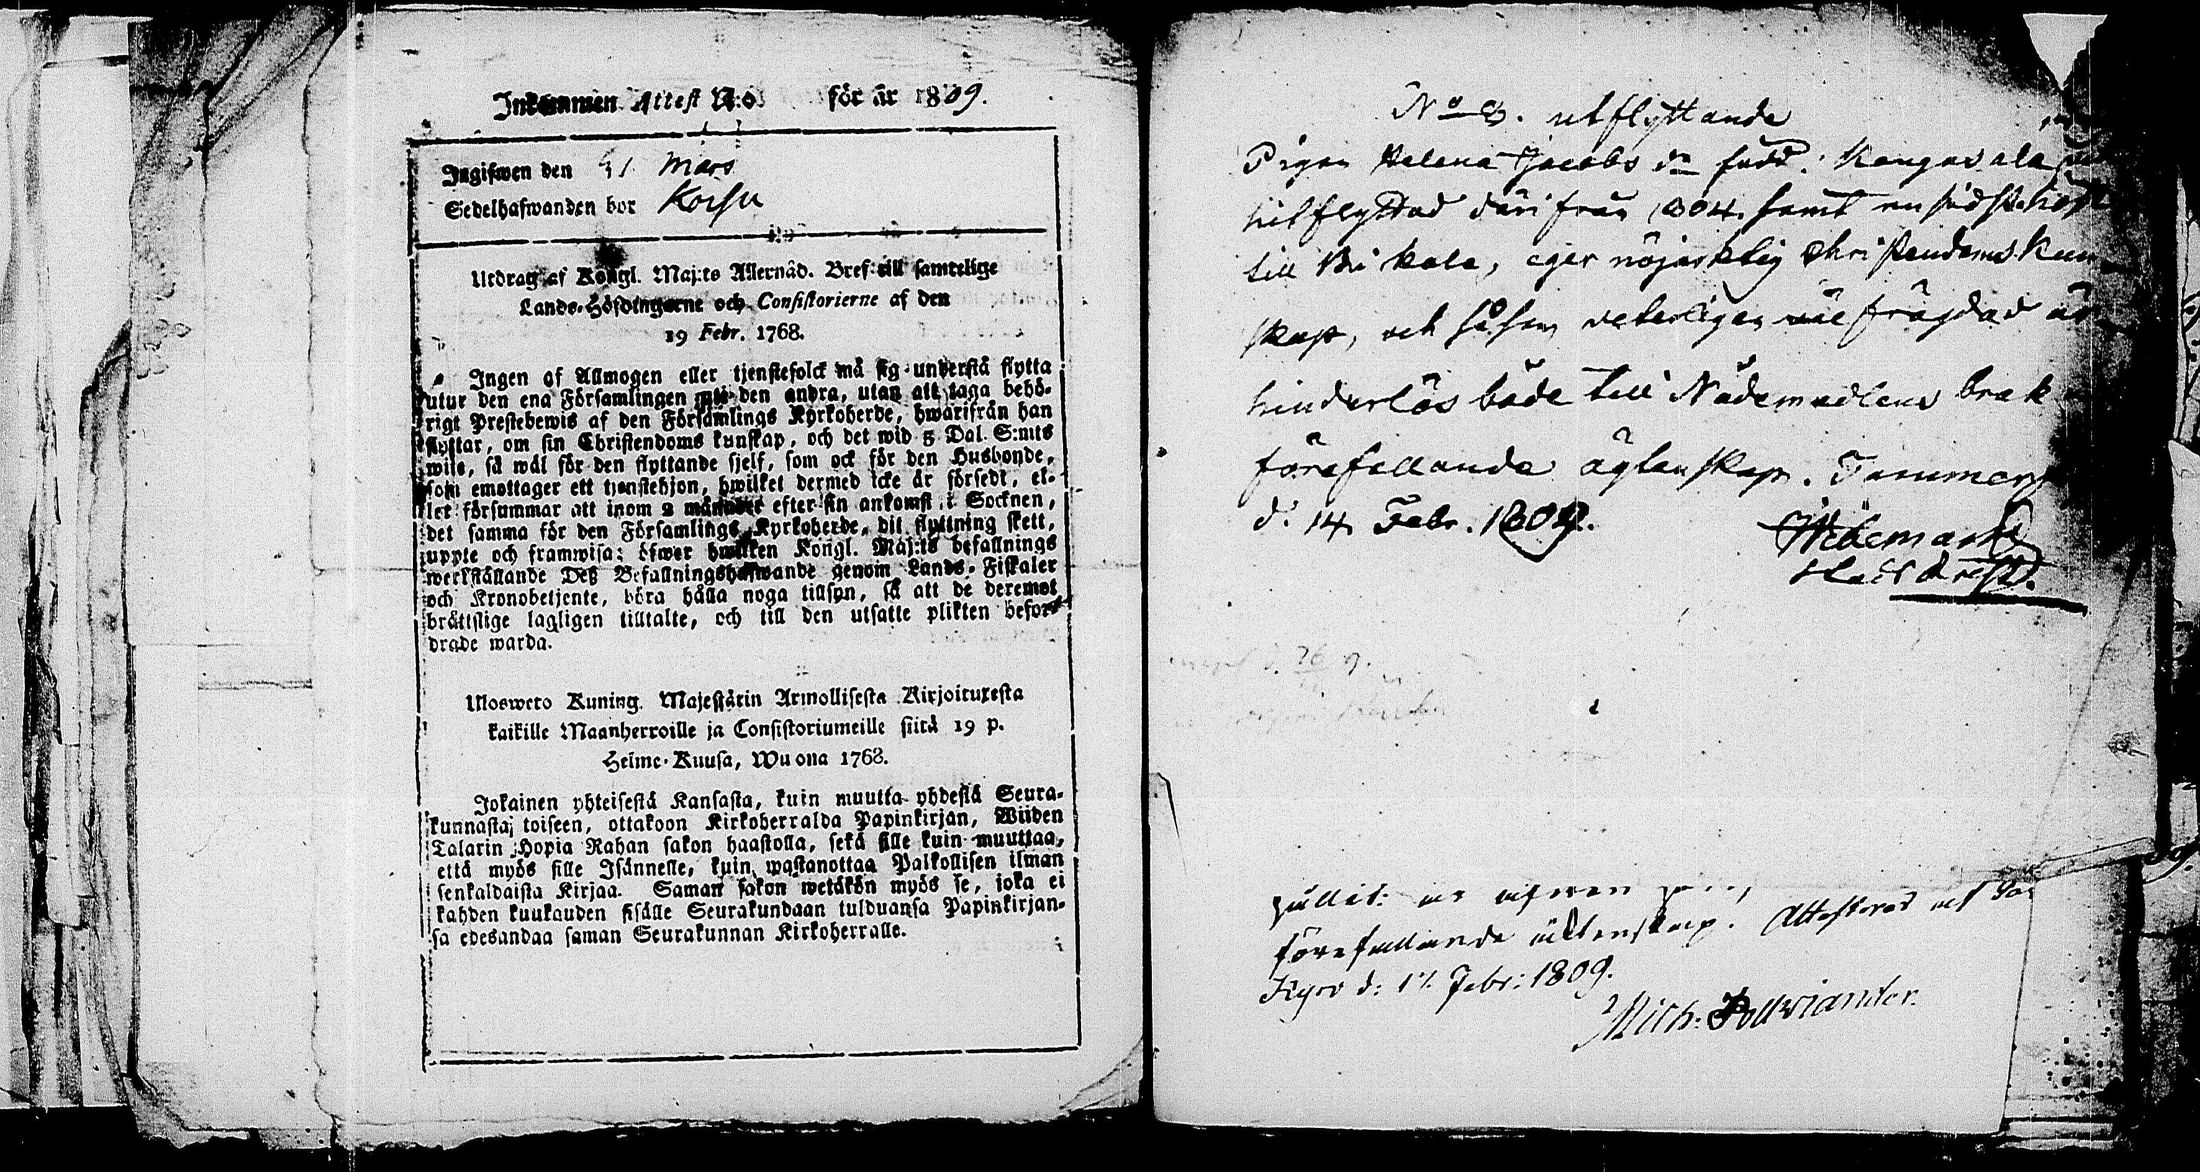 Inkommen Attest N:o för år 1809.
Ingifwen den 31 Mars
Sedelhafwanden bor Korsu
Utdrag af Kongl. Maj:ts Allernåd. Bref till samtelige
Lands-Höfdingarne och Consistorierne af den
19 Febr. 1768.
Ingen af Allmogen eller tjenstefolck må sig understå flytta
utur den ena Församlingen uti den andra, utan att taga behö-
rigt Prestebewis af den Församlings Kyrkoherde, hwarifrån han
flyttar, om sin Christendoms kunskap, och det wid 5 Dal. S:mts
wite, så wäl för den flyttande sjelf, som ock för den Husbonde,
som emottager ett tjenstehjon, hwilket dermed icke är försedt, el-
ler försummar att inom 2 månader efter sin ankomst i Socknen,
det samma för den Församlings Kyrkoherde, dit flyttning skett,
uppte och framwisa: öfwer hwilken Kongl. Maj:ts befallnings
werkställande Deß Befallningshafwande genom Lands-Fiskaler
och Kronobetjente, böra hålla noga tillsyn, så att de deremot
bråttslige lagligen tilltalte, och till den utsatte plikten befor-
drade warda.
Ulosweto Kuning. Majestätin Armollisesta Kirjoituxesta
kaikille Maanherroille ja Consistoriumeille siitä 19 p.
Helme-Kuusa, Wuona 1768.
Jokainen yhteisestä Kansasta, kuin muutta yhdestä Seura-
kunnastaj toiseen, ottakoon Kirkoherralda Papinkirjan, Wiiden
Talarin Hopia Rahan sakon haastolla, sekä sille kuin muuttaa,
että myös sille Isännelle, kuin wastanottaa Palkollisen ilman
senkaldaista Kirjaa. Saman sakon wetäkön myös se, joka ei
kahden kuukauden sisälle Seurakundaan tulduansa Papinkirjan-
sa edesandaa saman Seurakunnan Kirkoherralle.
No 8. utflyttande
Pigan Helena Jacobs dr född i Kangasala
hitflyttad därifrån 1804 samt nu
till Birkala, eger nöjaktig Christendoms kun-
skap, och såsom veterligen wälfrägdad är
hinderlös både till Nådemedlens bruk
förefallande ägtenskap. Tammerf
d. 14 Febr. 1809.
förefallande äktenskap. Attesteras af
Kyro d: 17. Febr: 1809.
Mich: Pollviander.